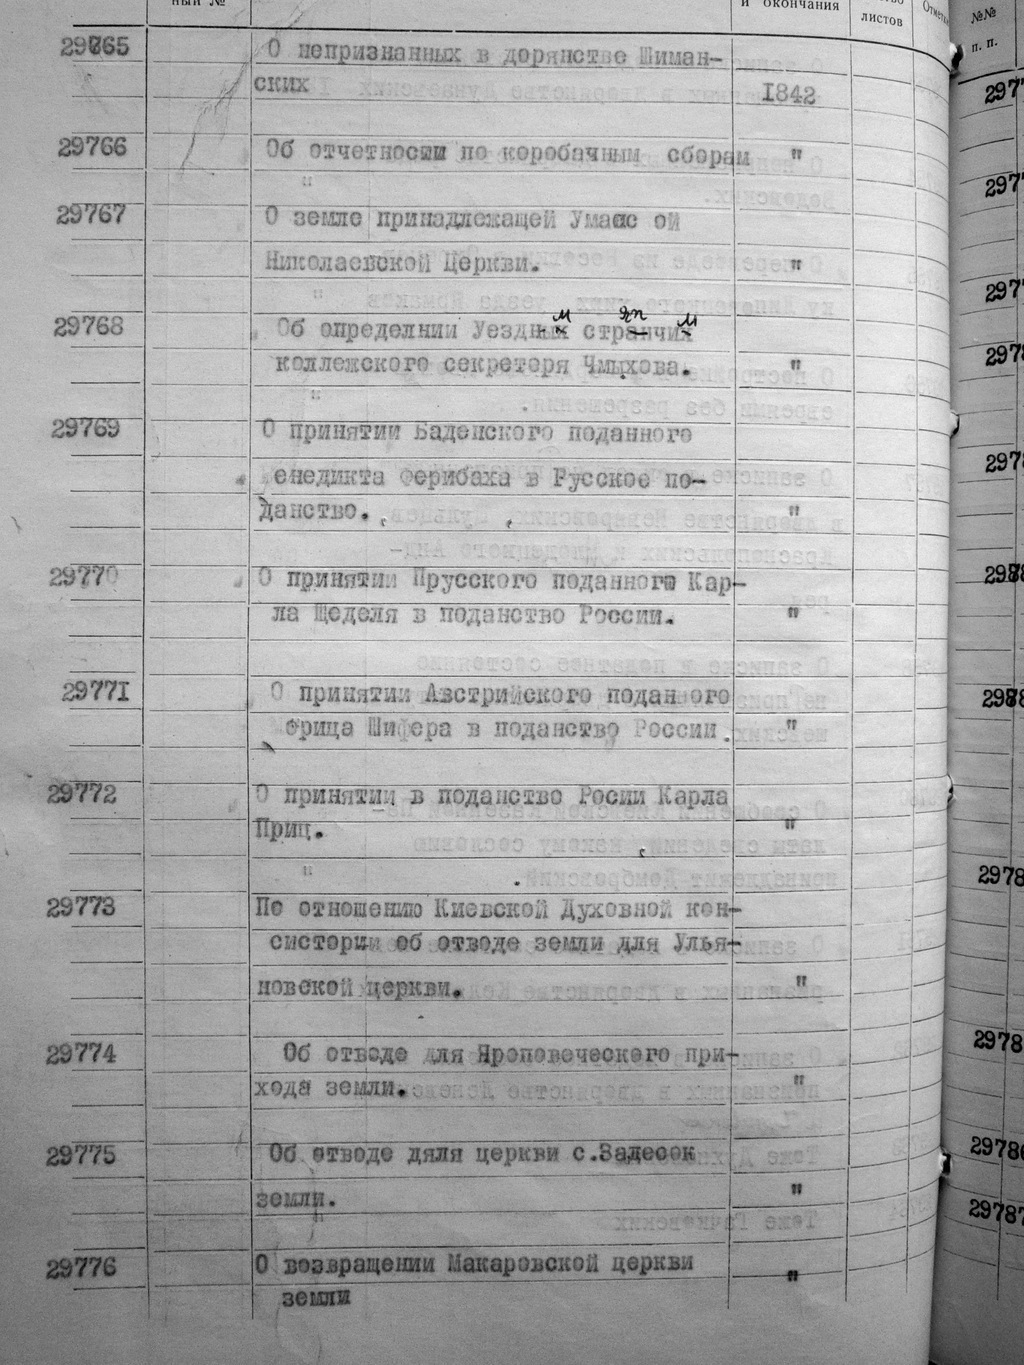 ный № и окончания листов Отметка №№ п. п.
29765 О непризнанных в дорянстве Шиман-
ских 1842
29766 Об отчетносии по коробачным сборам "
29767 О земле принадлежащей Умаис ой
Николаевской Церкви. "
29768 Об определнии Уездным стряпчим
коллежского секретеря Чмыхова. "
29769 О принятии Баденского поданного
енедикта ферибаха в Русское по-
данство. "
29770 О принятии Прусского поданного Кар-
ла Щеделя в поданство России. "
29771 О принятии Австрийского подан ого
Фрица Шифера в поданство России. "
29772 О принятии в поданство Росии Карла
Приц. "
29773 По отношению Киевской Духовной кон-
систории об отводе земли для Улья-
новской церкви. "
29774 Об отводе для Яроповеческого при-
хода земли. "
29775 Об отводе даля церкви с.Задесок
земли. "
29776 О возвращении Макаровской церкви "
земли